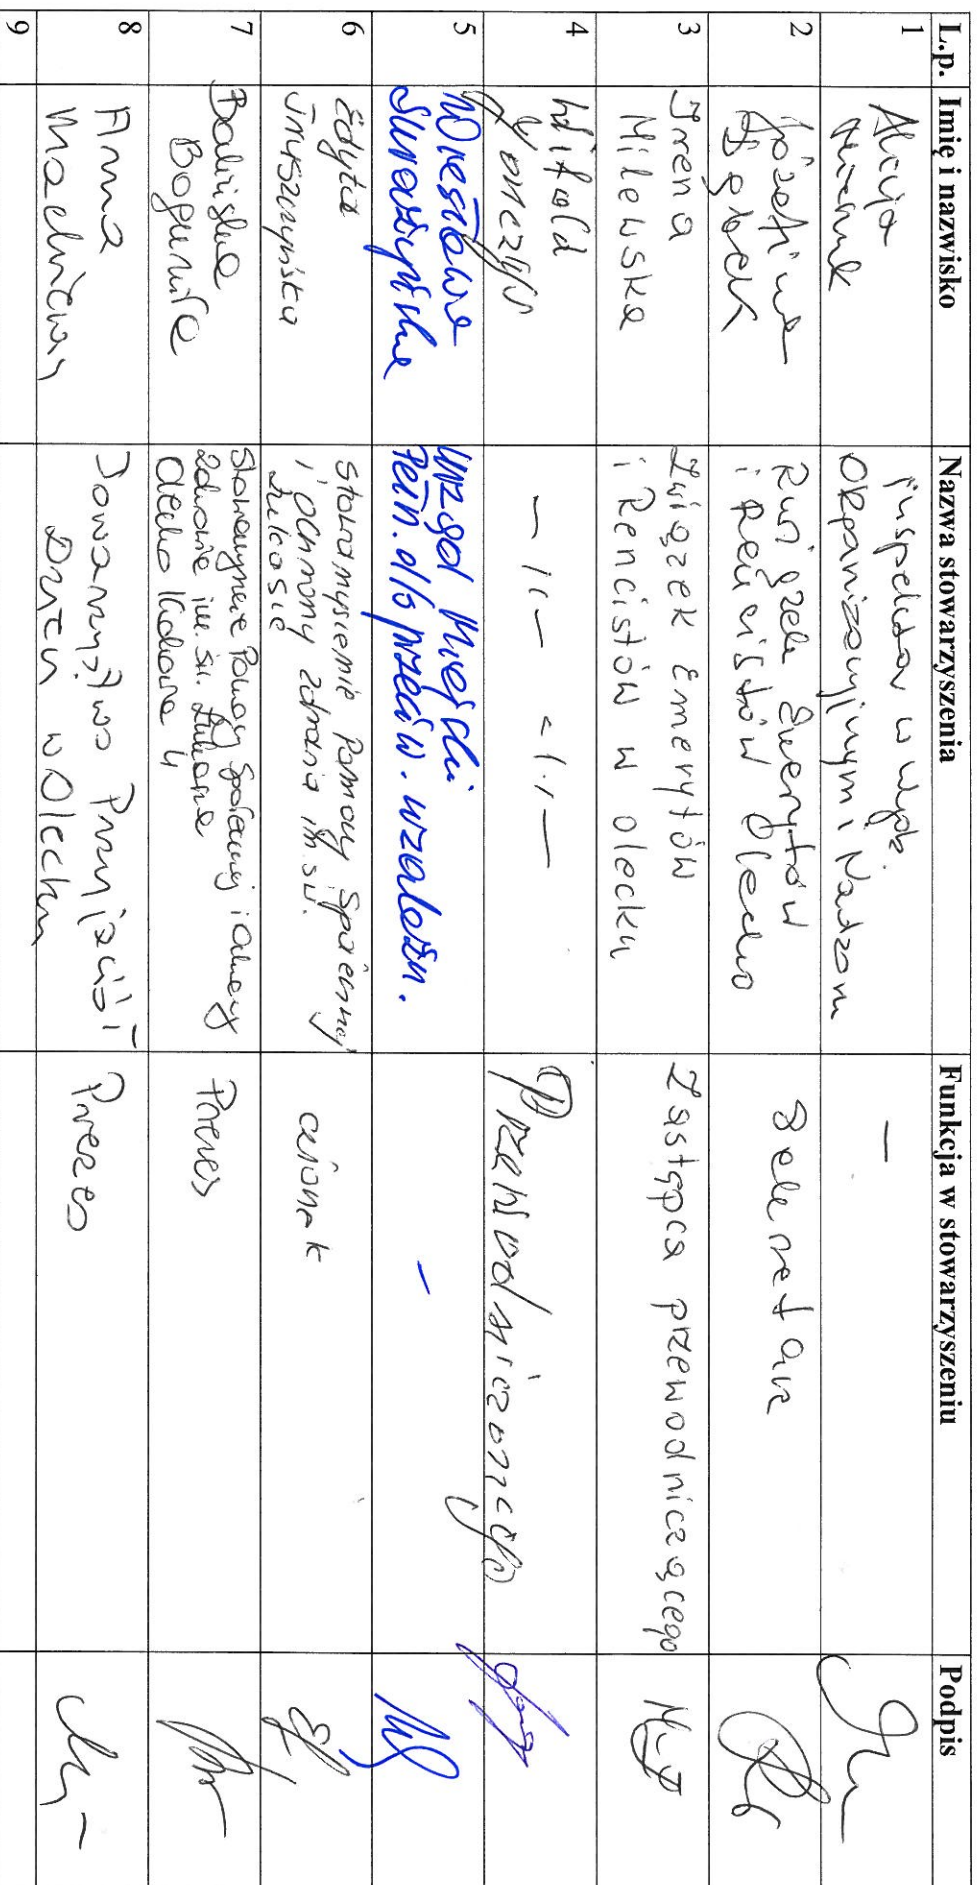 L.p. Imię i nazwisko Nazwa stowarzyszenia Funkcja w stowarzyszeniu Podpis
1 Alicja
inspektor w Wydz.
Organizacyjnym i Nadzoru
–
2 Józefina
Związek Emerytów
i Rencistów Olecko
Sekretarz
3 Irena
Milewska
Związek Emerytów
i Rencistów w Olecku
Zastępca przewodniczącego
4 Witold
– 11 – – 11 –
Przewodniczący
5 Wiesława
Urząd Miejski
Pełn. d/s przeciw. uzależn.
–
6 Edyta
Stowarzyszenie Pomocy Społecznej
i Ochrony Zdrowia im. św.
Łukasza
członek
7
Stowarzyszenie Pomocy Społecznej i Ochrony
Zdrowia im. św. Łukasza
Prezes
8 Anna
Towarzystwo Przyjaciół
w Olecku
Prezes
9